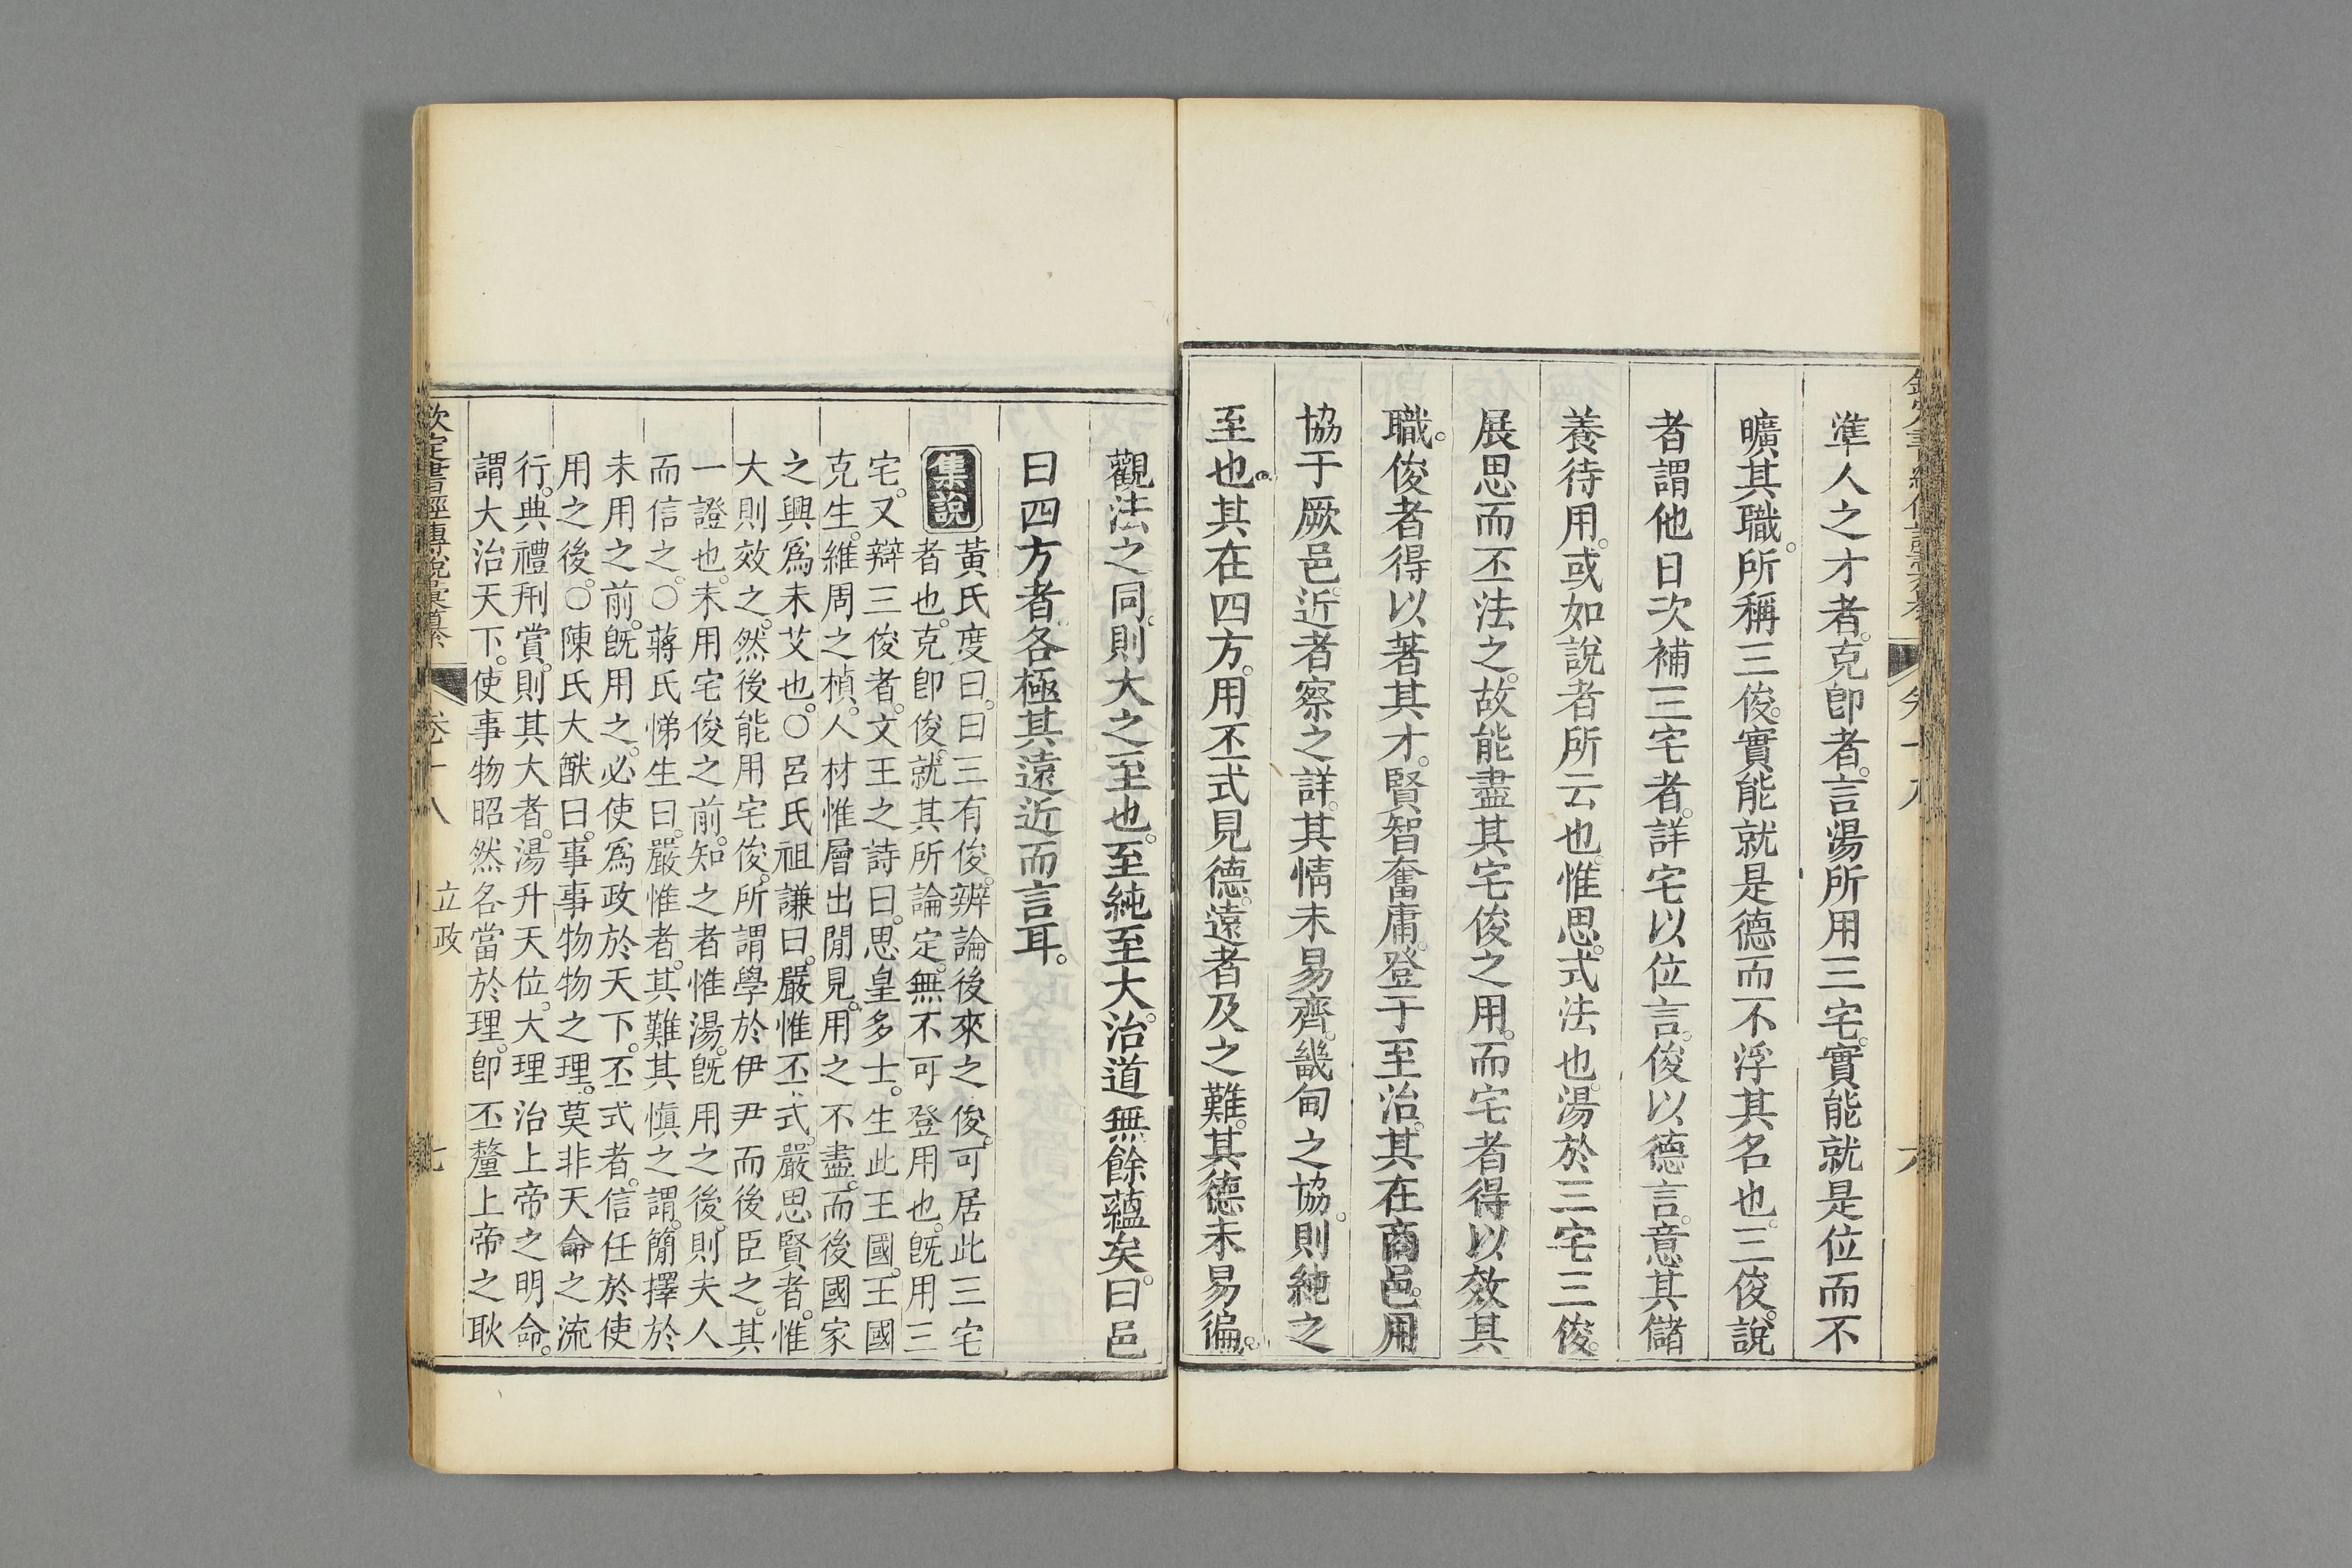 準人之才者。克卽者。言湯所用三宅。實能就是位而不
曠其職。所稱三俊。實能就是德而不浮其名也。三俊。說
者謂他日次補三宅者。詳宅以位言。俊以德言。意其儲
養待用。或如說者所云也。惟思。式法也。湯於三宅三俊。
展思而丕法之。故能盡其宅俊之用。而宅者得以效其
職。俊者得以著其才。賢智奮庸。登于至治。其在商邑。用
協于厥邑。近者察之詳。其情未易齊。畿甸之協。則純之
至也。其在四方。用丕式見德。遠者及之難。其德未易徧。
觀法之同。則大之至也。至純至大。治道無餘蘊矣。曰邑
曰四方者各極其遠近而言耳。
集說
黃氏度曰。曰三有俊。辨論後來之俊。可居此三宅
者也。克卽俊。就其所論定。無不可登用也。旣用三
宅。又辯三俊者。文王之詩曰。思皇多士。生此王國。王國
克生。維周之楨。人材惟層出閒見。用之不盡。而後國家
之興爲未艾也。○呂氏祖謙曰。嚴惟丕式。嚴思賢者。惟
大則效之。然後能用宅俊。所謂學於伊尹而後臣之。其
一證也。未用宅俊之前。知之者惟湯。旣用之後。則夫人
而信之。○蔣氏悌生曰。嚴惟者。其難其愼之謂。簡擇於
未用之前。旣用之。必使爲政於天下。丕式者。信任於使
用之後。○陳氏大猷曰。事事物物之理。莫非天命之流
行。典禮刑賞。則其大者。湯升天位。大理治上帝之明命。
謂大治天下。使事物昭然各當於理。卽丕釐上帝之耿
欽定書經傳說彙纂
卷十八
立政
七